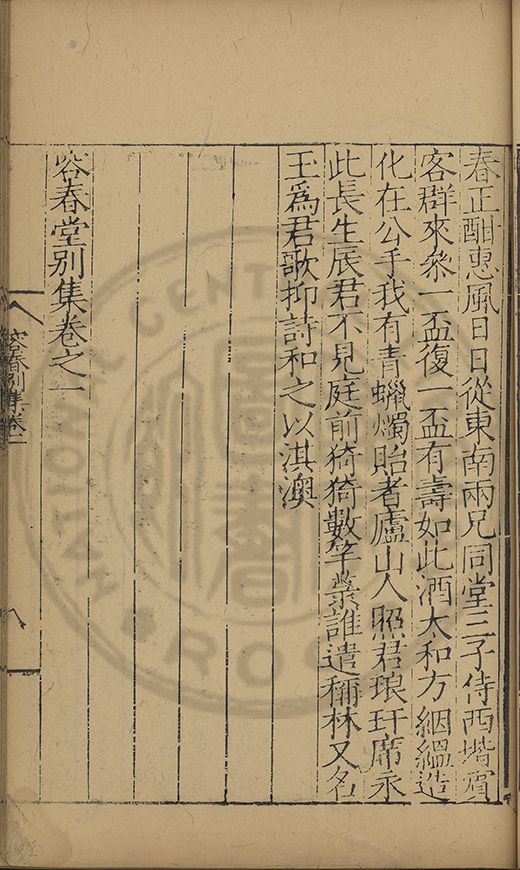 春正酣惠風日日從東南兩兄同堂三子侍西堦賔
客群來叅一盃復一盃有壽如此酒太和方絪縕造
化在公手我有青蠟燭貽者廬山人照君琅玕席永
此長生辰君不見庭前猗猗數竿葉誰遣稱林又名
玉為君歌抑詩和之以淇澳
容春堂別集卷之一
容春別集卷一